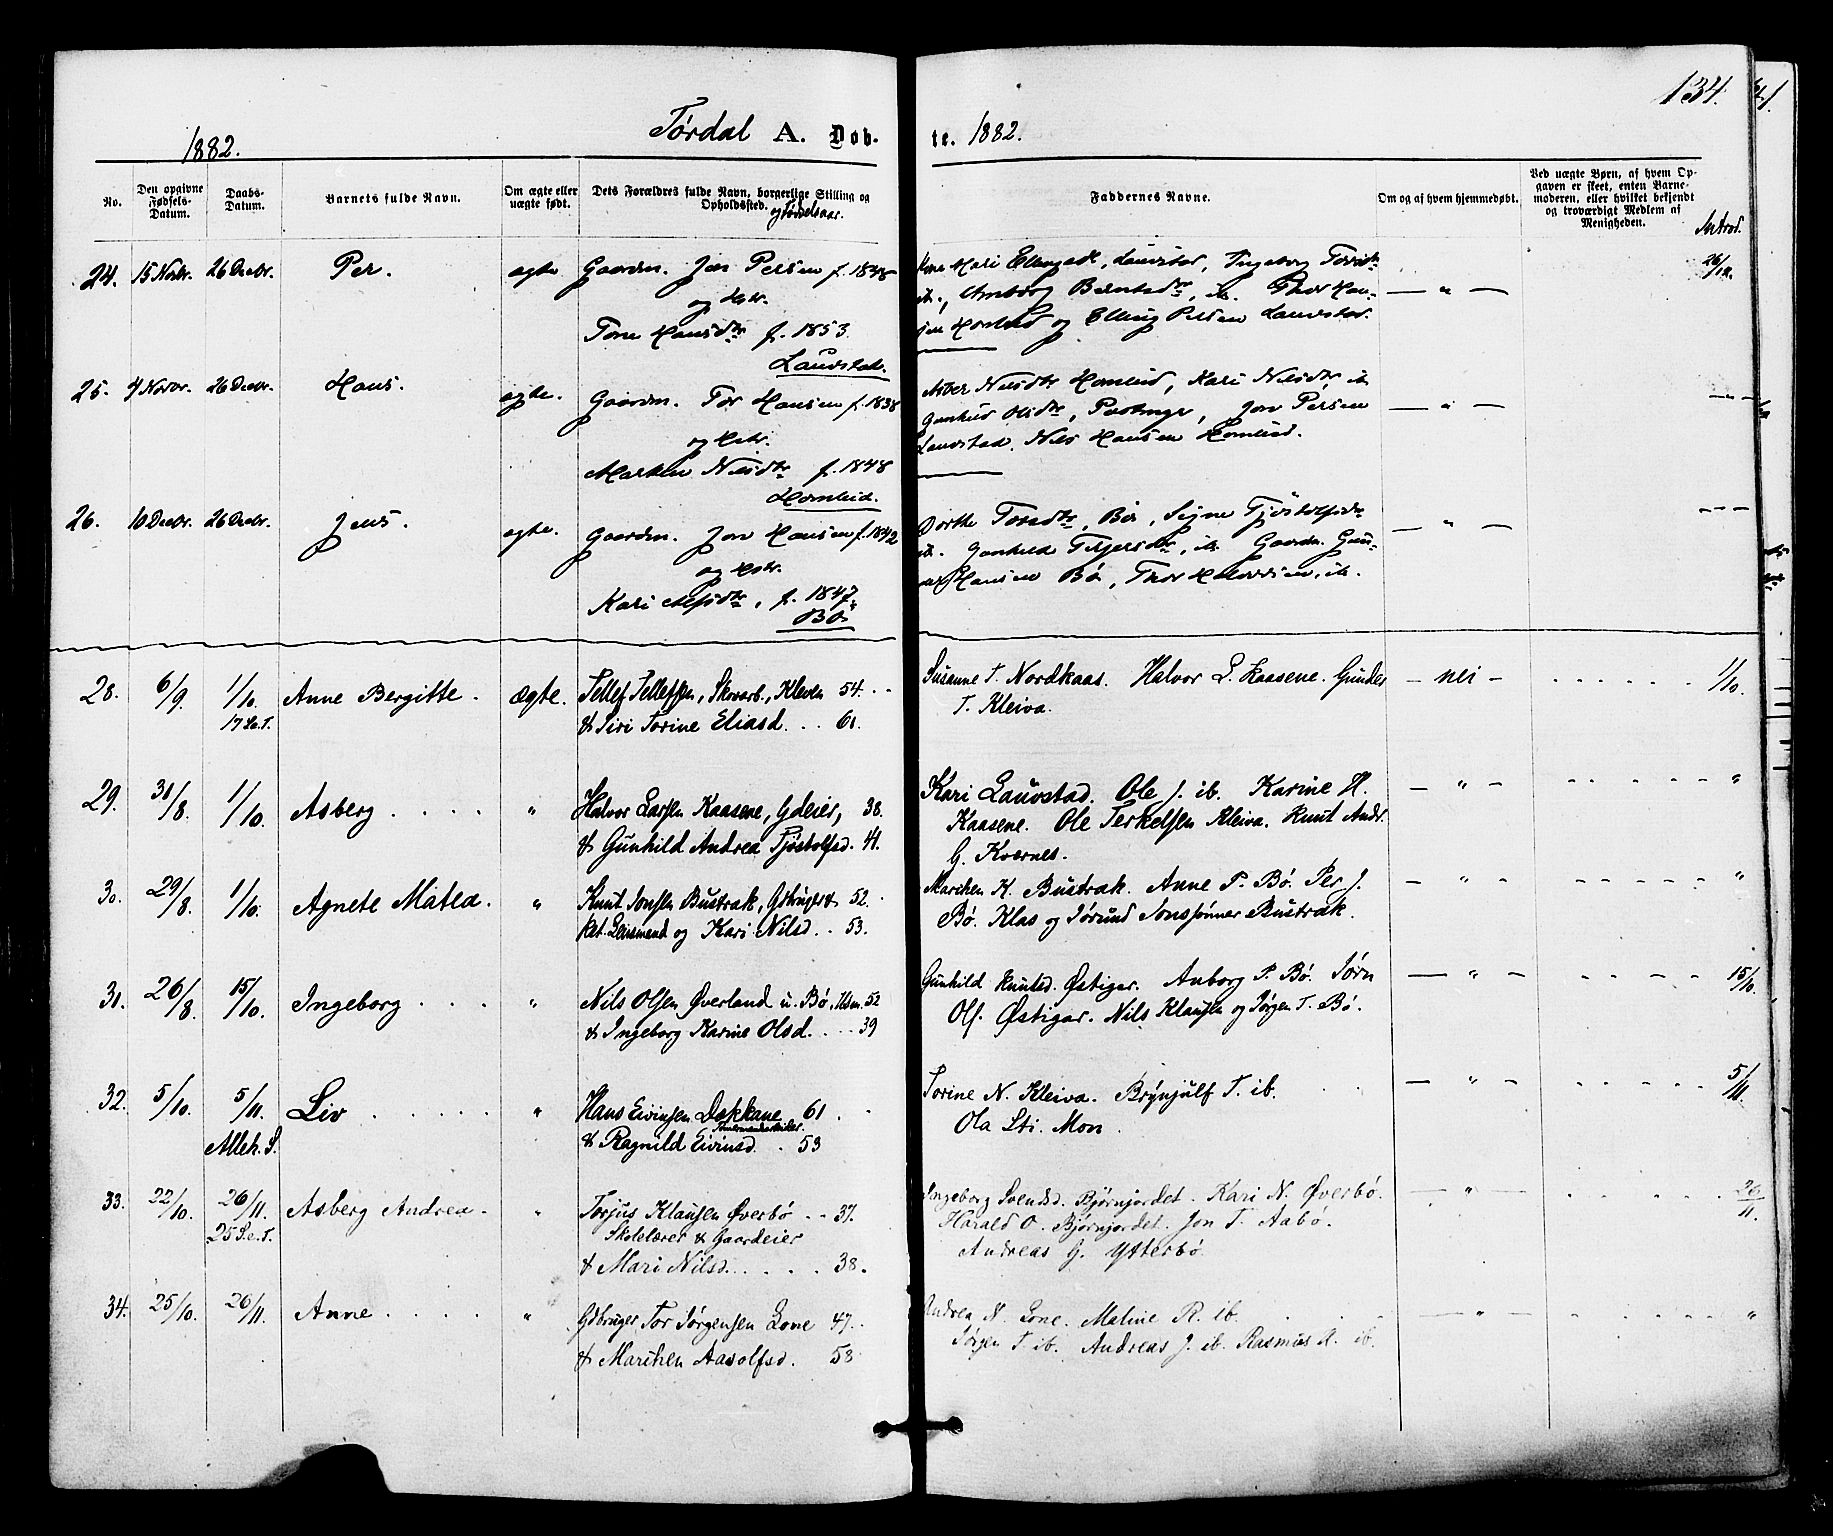 134.
1882. Tørdal A. Døb- te. 1882.
No. Den opgivne Fødsels-Datum. Daabs-Datum. Barnets fulde Navn. Om ægte eller uægte født. Dets Forældres fulde Navn, borgerlige Stilling og Opholdssted. og Fødselsaar. Faddernes Navne. Om og af hvem hjemmedøbt. Ved uægte Børn, af hvem Opgaven er skeet, enten Barnemoderen, eller hvilket bekjendt og troværdigt Medlem af Menigheden. Introd.
24. 15 Novbr. 26 Decbr. Per. ægte Gaardm. Jon Persen f. 1848 Kari Ellingsdr, Lauvstad, Ingeborg Torsdtr 26/12.
og Hstr. ib., Anborg Berntsdtr, ib. Thor Han- — " —
Tone Hansdtr f. 1853. sen Homlid og Elling Persen Lauvstad.
Lauvstad.
25. 4 Novbr. 26 Decbr. Hans. ægte. Gaardm. Tor Hansen f. 1838 Nilsdtr Homlid, Kari Nilsdtr, ib
og Hstr. Gunhild Olsdtr, Jon Persen — " —
Marthe Nilsdtr f. 1848 Lauvstad. Nils Hansen Homlid.
Homlid.
26. 10 Decbr. 26 Decbr. Jens. ægte. Gaardm. Jon Hansen f. 1842 Dorthe Torsdtr, Bø, Signe Tjøstolfsdtr — " —
og Hstr. ib. Gunhild Terjersdtr, ib. Gaardm. Gun-
Kari f. 1847. Hansen Bø, Thor Halvorsen, ib.
Bø.
28. 6/9 1/10. Anne Bergitte. Ægte. Tellef Tellefsen, Skovarb., Kleven 54. Susanne T. Nordkaas. Halvor L. Kaasene. Gunder — nei — 1/10.
17 S.e.T. & Siri Torine Eliasd. . . 61. T. Kleiva.
29. 31/8 1/10. Asberg " Halvor Larsen Kaasene, Gdeier, 38. Kari Lauvstad. Ole J. ib. Karine H. — " — "
& Gunhild Andrea Tjøstolfsd. 41. Kaasene. Ole Terkelsen Kleiva. Knut Andr.
G. Kvernes.
30. 29/8 1/10. Agnete Matea. " Knut Jonsen Bustrak, Gdbruger & 52. Marthen K. Bustrak. Anne P. Bø. Per J. — " — "
kst. Lensmand og Kari Nilsd. . 53. Bø. Klas og Jørund Jonssønner Bustrak.
31. 26/8. 15/10. Ingeborg " Nils Olsen Øverland u. Bø, Hsm. 52 Gunhild Knutsd. Østigar. Anborg P. Bø. Jørn — " — 15/10.
& Ingeborg Karine Olsd. . . . 39 Ols. Østigar. Nils Klausen og Jørgen T. Bø.
32. 5/10. 5/11. Liv " Hans Eivinsen Dækkane 61. Torine N. Kleiva. Brynjulf T. ib. — " — 5/11.
Alleh. S. & Ragnild Eivinsd . . 53 Ola Sti. Mon.
33. 22/10. 26/11. Asberg Andrea. " Torjus Klausen Øverbø . . 37. Ingeborg Svendsd. Bjørnjordet. Kari N. Øverbø. " 26/11.
25 S.e.T. Skolelærer & Gaardeier Harald O. Bjørnjordet. Jon T. Aabø.
& Mari Nilsd. . . . . 38. Andreas G. Ytterbø
34. 25/10. 26/11. Anne " Gdbruger Tor Jørgensen Lone 47. Andrea N. Lone. Maline R. ib. " "
& Marthen Aasolfsd. 58 Jørgen T. ib. Andreas J. ib. Rasmus A. ib.